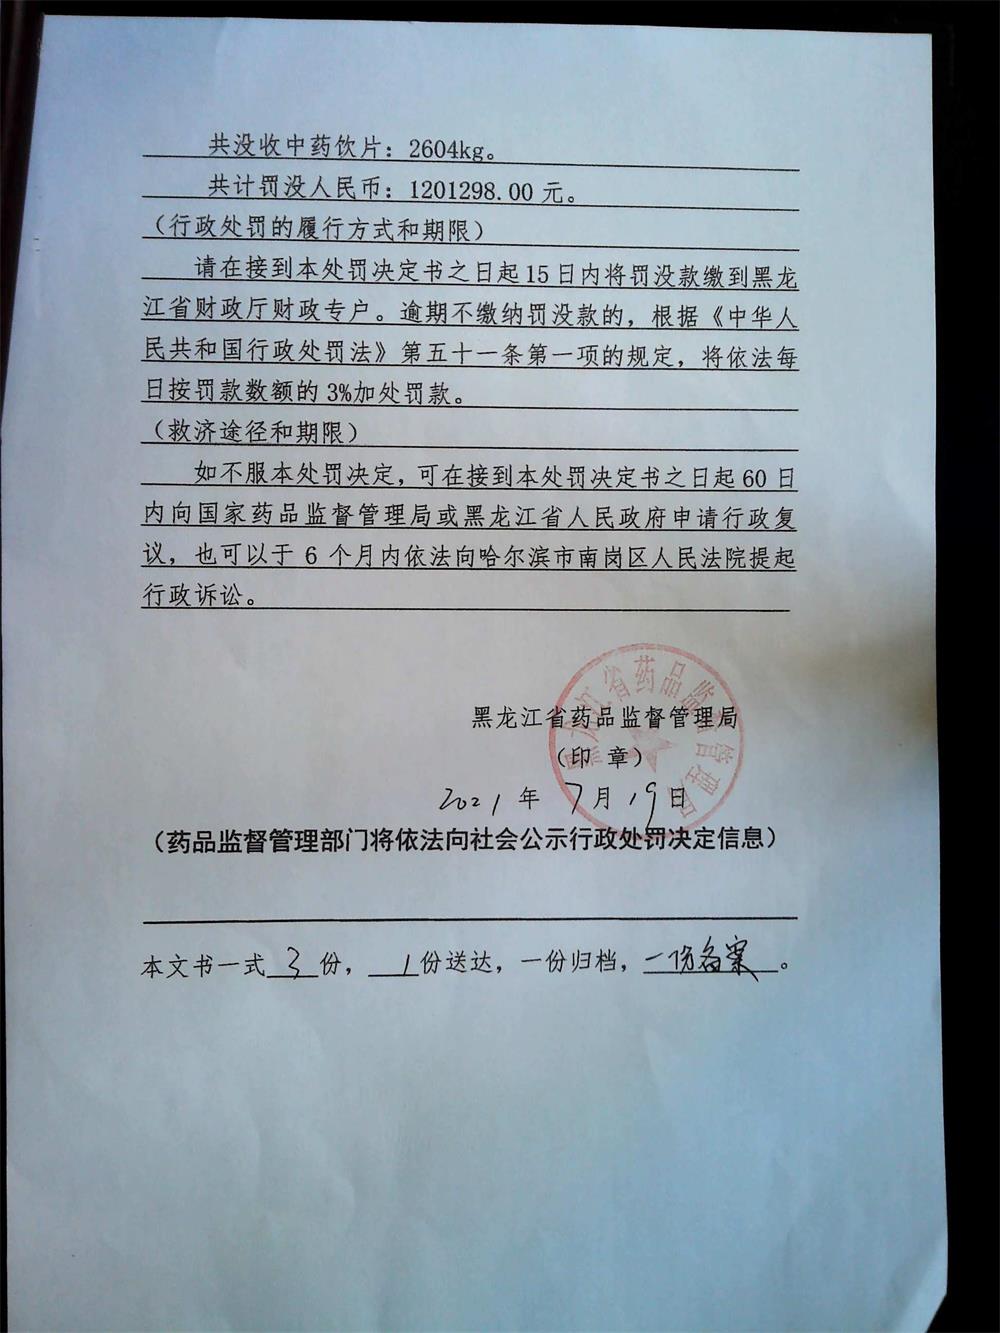 共没收中药饮片：2604kg。
共计罚没人民币：1201298.00 元。
（行政处罚的履行方式和期限）
请在接到本处罚决定书之日起 15 日内将罚没款缴到黑龙
江省财政厅财政专户。逾期不缴纳罚没款的，根据《中华人
民共和国行政处罚法》第五十一条第一项的规定，将依法每
日按罚款数额的 3%加处罚款。
（救济途径和期限）
如不服本处罚决定，可在接到本处罚决定书之日起 60 日
内向国家药品监督管理局或黑龙江省人民政府申请行政复
议，也可以于 6 个月内依法向哈尔滨市南岗区人民法院提起
行政诉讼。
黑龙江省药品监督管理局
黑龙江省药品监督管理局
（印 章）
2021 年 7 月 19 日
（药品监督管理部门将依法向社会公示行政处罚决定信息）
本文书一式 3 份， 1 份送达，一份归档，一份备案。